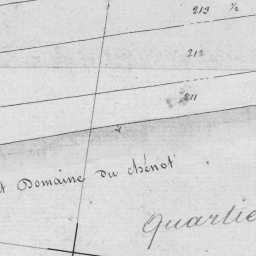 213 ½
212
211
2
t Domaine du chénot
Quartie